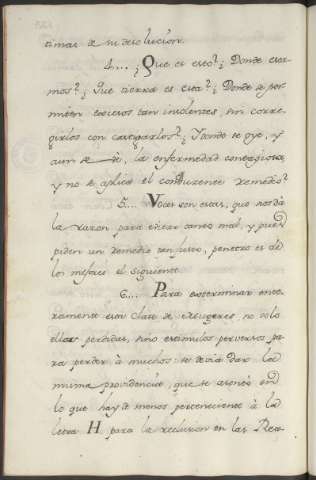 timas de su disolucion.
4.... ¿Que es esto? ¿Donde esta-
mos? ¿Que tierra es esta? ¿Donde se per-
miten excesos tan insolentes, sin corre-
girlos con castigarlos? ¿Y donde se oye, y
aun se vé, la enfermedad contagiosa,
y no se aplica el conducente remedio?
5.... Voces son estas, que nos dá
la razon para evitar tanto mal, y pues
piden un remedio tan justo, penetro es de
los el siguiente
6.... Para exterminar ente-
ramente esta clase de Mugeres, no solo
ellas perdidas, sino estimulos perversos pa-
ra perder à muchos se devia dar la
misma providencia, que se asoned en
lo que hay de menos perteneciente à la
letra H para la reclusion en las Rea-